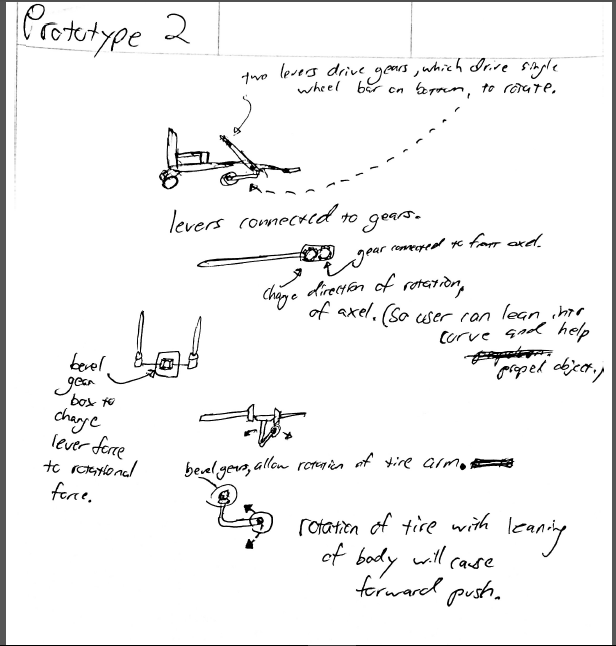 Prototype 2
two levers drive gears, which drive single
wheel bar on bottom, to rotate.
levers connected to gears.
gear connected to front axel.
change direction of rotation,
of axel. (So user can lean into
curve and help
propel object.)
bevel
gear
box to
change
lever force
to rotational
force.
bevel gears, allow rotation of tire arm.
rotation of tire with leaning
of body will cause
forward push.